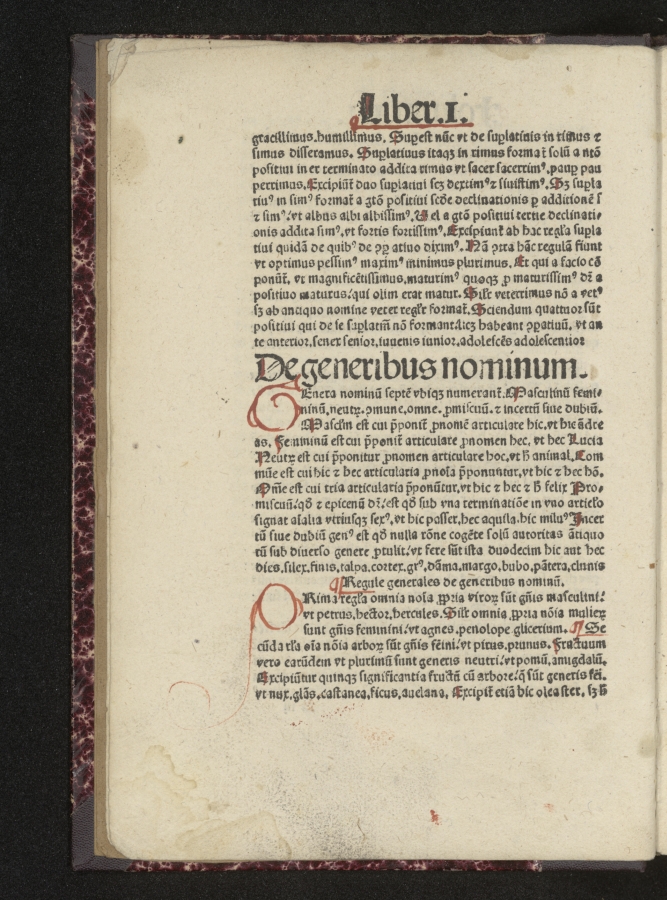 Liber.I.
gracillimus.humillimus. Supest nūc vt de suplatiuis in rimus ⁊
simus disseramus. Suplatiuus itaqꝫ in rimus format̄ solū a ntō
positiui in er terminato addita rimus vt sacer sacerrimꝰ.paup pau
perrimus.Excipiūt̄ duo suplatiui scꝫ dextimꝰ⁊ sinistimꝰ. Sꝫ supla
tiuꝰ in simꝰ format̄ a gtō positiui scd̄e declinationis p additionē s
⁊ simꝰ:vt albus albi albissimꝰ. Vel a gtō positiui tertie declinati-
onis addita simꝰ.vt fortis fortissimꝰ. Excipiunt̄ ab hac regl̄a supla
tiui quidā de quibꝰ de ꝯꝑatiuo diximꝰ. Nā ꝯtra hāc regulā fiunt
vt optimus pessimꝰ maximꝰ minimus plurimus. Et qui a facio cō
ponūt̄. vt magnificētissimus.maturimꝰ quoqꝫ ꝓ maturissimꝰ dr̄ a
positiuo maturus:qui olim erat matur. Sil̄r veterrimus nō a vetꝰ
sꝫ ab antiquo nomine veter regl̄r format̄. Sciendum quattuor sūt
positiui qui de se suplatiū nō formant:licꝫ habeant ꝯꝑatiuū. vt an
te anterior.senex senior.iuuenis iunior.adolescēs adolescentior
De generibus nominum.
GEnera nominū septē vbiqꝫ numerant̄. Masculinū femi-
ninū.neutꝝ.ꝯmune.omne. ꝓmiscuū. ⁊ incertū siue dubiū.
Mascl̄m est cui p̄ponit̄ ꝓnomē articulare hic.vt hic ādre
as. Femininū est cui p̄ponit̄ articulare ꝓnomen hec. vt hec Lucia
Neutꝝ est cui p̄ponitur ꝓnomen articulare hoc.vt h̄ animal. Com
mūe est cui hic ⁊ hec articularia ꝓnoīa p̄ponuntur.vt hic ⁊ hec hō.
Om̄e est cui tria articularia p̄ponūtur.vt hic ⁊ hec ⁊ h̄ felix Pro-
miscuū:qđ ⁊ epicenū dr̄:est qđ sub vna terminatiōe in vno articl̄o
signat aīalia vtriusqꝫ sexꝰ.vt hic passer.hec aquila.hic miluꝰ Incer
tū siue dubiū genꝰ est qđ nulla rōne cogēte solū autoritas ātiquo
tū sub diuerso genere ꝓtulit:vt fere sūt ista duodecim hic aut hec
dies.silex.finis.talpa.cortex.grꝰ.dāma.margo.bubo.pātera.clunis
Regule generales de generibus nominū.
PRima regl̄a omnia noīa ꝓpria viroꝝ sūt gn̄is masculini:
vt petrus.hector.hercules. Sil̄r omnia ꝓpria nōia mulieꝝ
sunt gn̄is feminini:vt agnes.penolope glicerium. Se
cūda rl̄a oīa nōia arboꝝ sūt gn̄is fēini:vt pirus.prunus. Fructuum
vero earūdem vt plurimū sunt generis neutri:vt pomū.amigdalū.
Excipiūtur quinqꝫ significantia fructū cū arbore:q̄ sūt generis fēi.
vt nux.glās.castanea.ficus.auelana. Excipit̄ etiā hic oleaster. sꝫ h̄